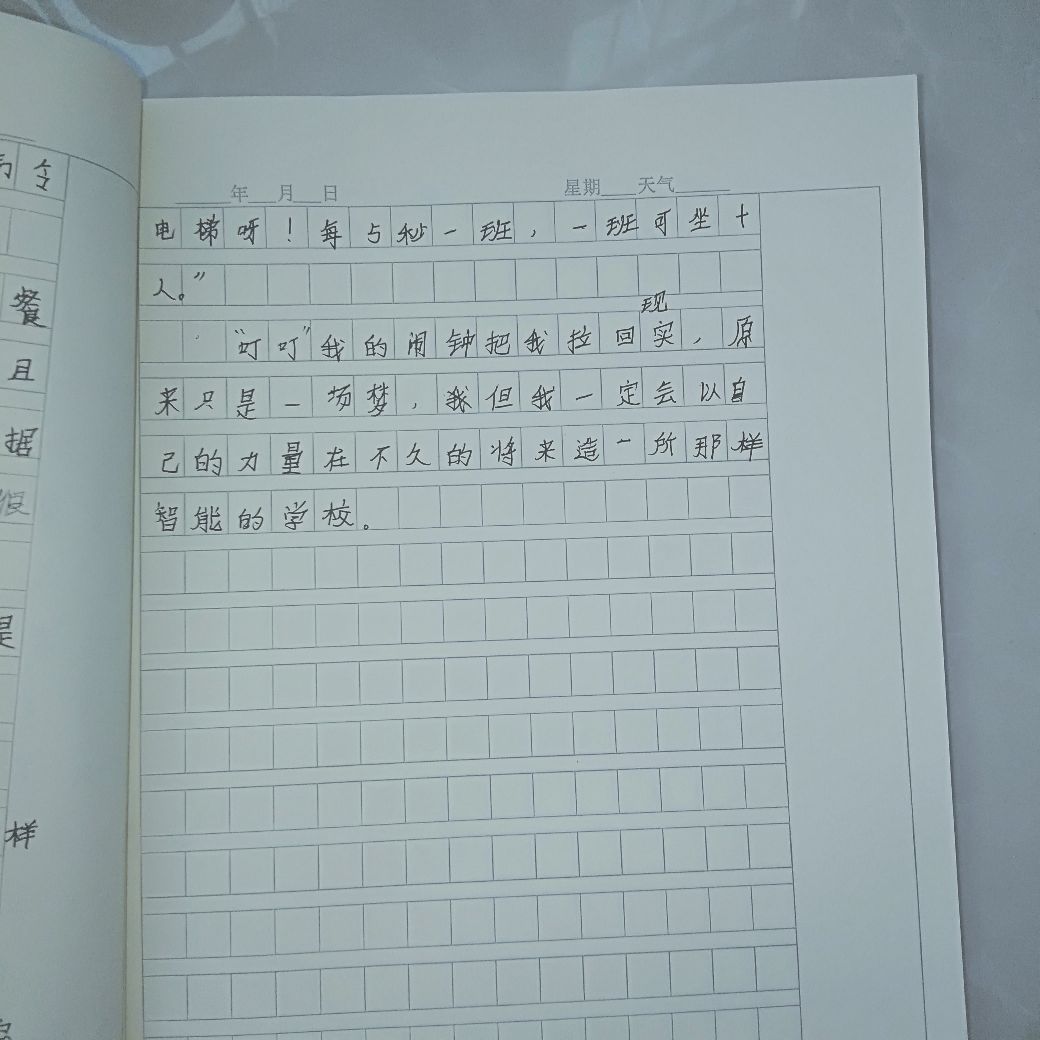 令
餐
且
据
是
样
____年__月__日 星期___天气____
电梯呀！每5秒一班，一班可坐十
人。”
“叮叮”我的闹钟把我拉回现实，原
来只是一场梦，我但我一定会以自
己的力量在不久的将来造一所那样
智能的学校。